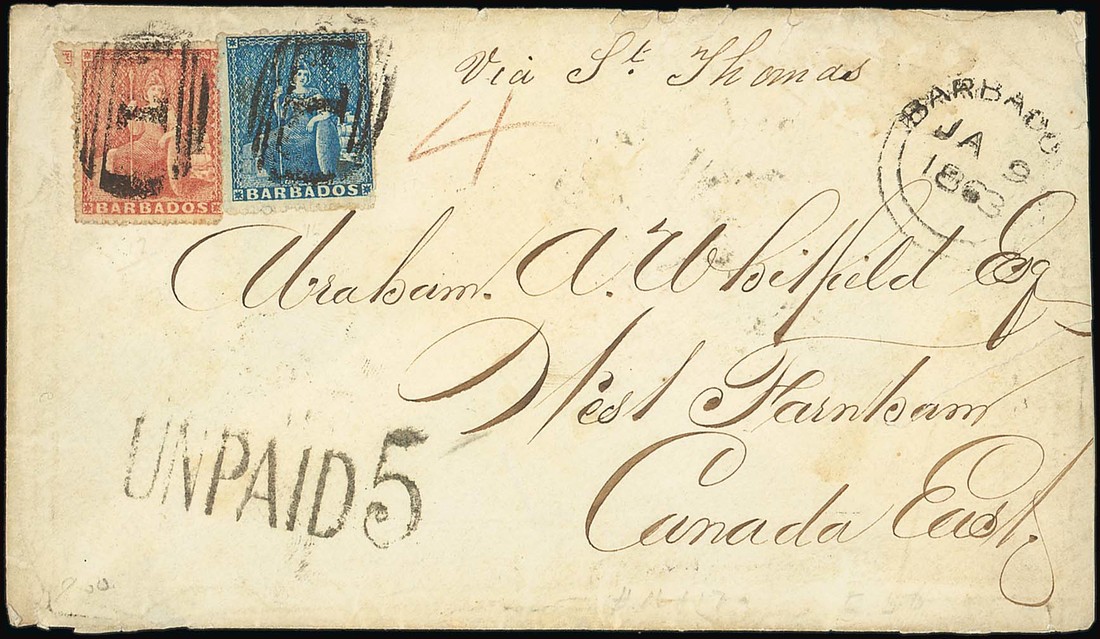 Via St. Thomas
4
BARBADOS
BARBADOS
BARBADO
JA 9
1863
Abraham. A. Whitfield Esq
West Farnham
Canada East.
UNPAID 5